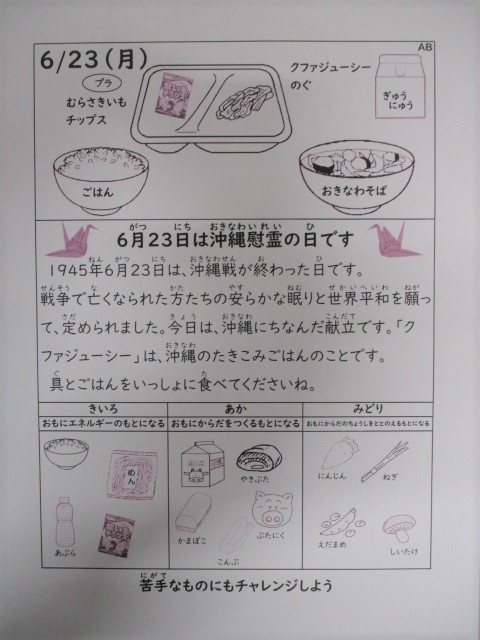 AB
6/23(月)
プラ
むらさきいも
チップス
クファジューシー
のぐ
ぎゅう
にゅう
ごはん
おきなわそば
6月23日は沖縄慰霊の日です
1945年6月23日は、沖縄戦が終わった日です。
戦争で亡くなられた方たちの安らかな眠りと世界平和を願っ
て、定められました。今日は、沖縄にちなんだ献立です。「ク
ファジューシー」は、沖縄のたきこみごはんのことです。
具とごはんをいっしょに食べてくださいね。
きいろ
おもにエネルギーのもとになる
あか
おもにからだをつくるもとになる
みどり
おもにからだのちょうしをととのえるもとになる
めん
あぶら
やきぶた
かまぼこ
ぶたにく
こんぶ
にんじん
ねぎ
えだまめ
しいたけ
苦手なものにもチャレンジしよう